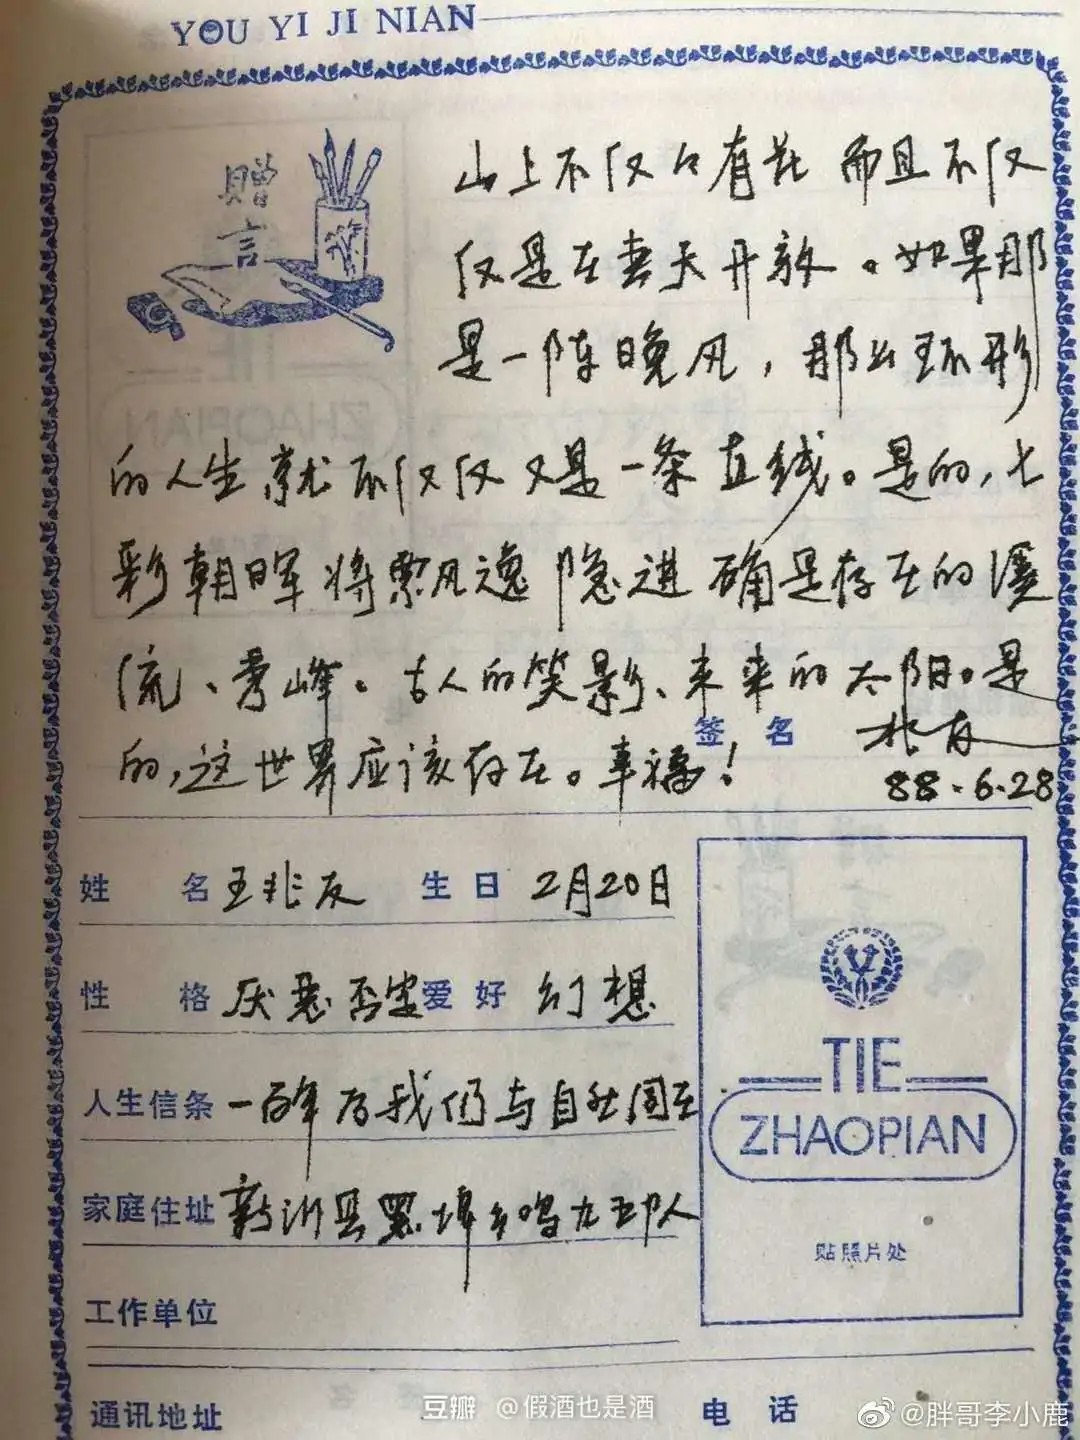 YOU YI JI NIAN
赠言
山上不仅只有花 而且不仅
仅是在春天开放。如果那
是一阵晚风，那么环形
的人生就不仅仅又是一条直线。是的，七
彩朝晖将飘逸隐进确是存在的溪
流、秀峰。古人的笑影、未来的太阳。是
的，这世界应该存在。幸福！
签名 兆友
88.6.28
姓名 王兆友 生日 2月20日
性格 厌恶否定 爱好 幻想
人生信条 一百年后我们与自然同在
家庭住址 新沂县 鸣九五队
工作单位
TIE
ZHAOPIAN
贴照片处
通讯地址 电话
豆瓣 @假酒也是酒
@胖哥李小鹿